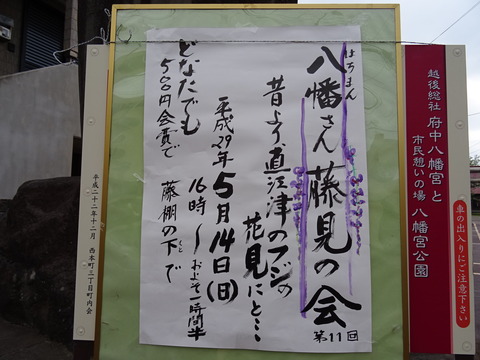 はちまん
八幡さん藤見の会
第11回
昔より、直江津のフジの
花見にと…
平成29年5月14日(日)
16時〜およそ一時間半
どなたでも
500円会費で
藤棚の下で
越後総社 府中八幡宮と
市民憩いの場 八幡宮公園
車の出入りにご注意下さい
平成二十二年十二月 西本町三丁目町内会